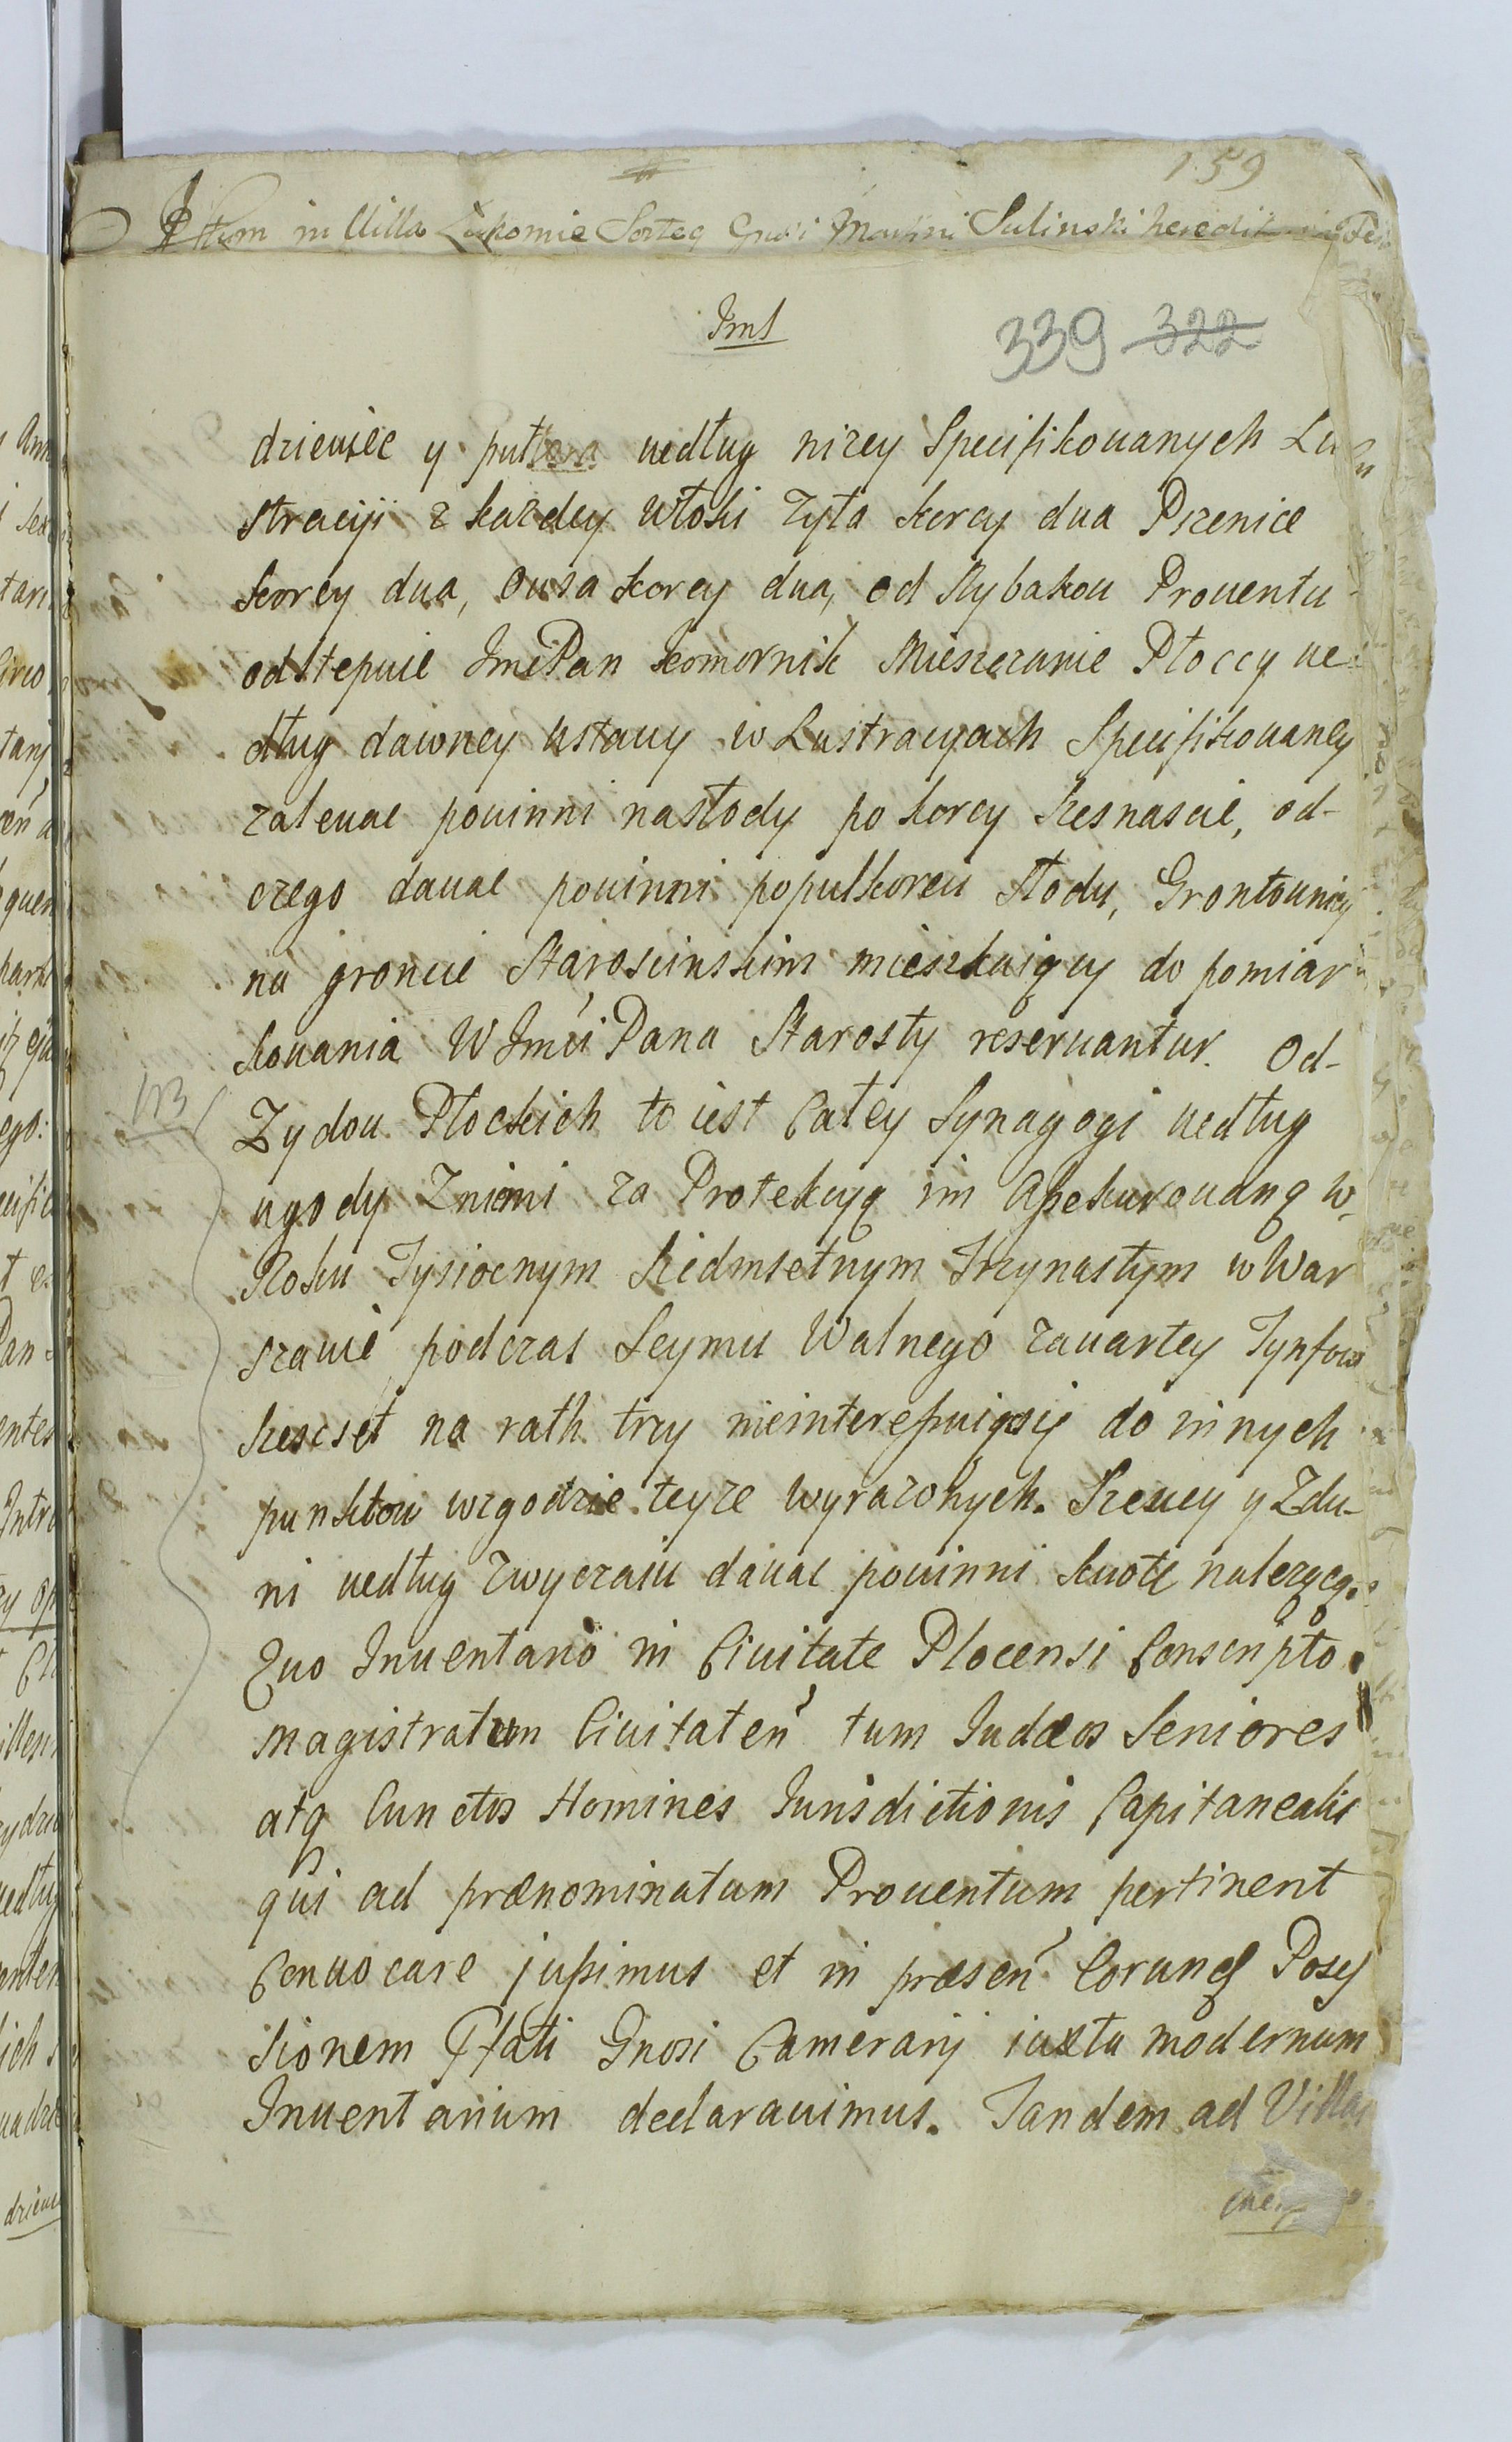 159
Actum in Villa Łukomie Sorteq Gnosi Martini Sulinski heredit
Imś
339 322
dziewięc y puł według nizey Specifikouanych Lu
stracyi z kazdey włoki zyta korcy dua Przenice
korcy dua, Ousa korcy dua, od Rybakou Prouentu
odstepuie ImePan komornik Mieszczanie Płoccy we
dług dawney ustauy w Lustracyach Specifikouaney
zaleuac pouinni nasłody po korcy szesnascie, od-
czego dauac pouinni popułkorcu słodu, Grontounicy
na groncie Staroscinskim mieszkaiący do pomiar
kouania WImci Pana Starosty reseruantur. Od-
NB
Zydou Płockich to iest Całey Synagogi według
ugody Znimi za Protekcyą im Apekurouaną w
Roku Tysiocnym Siedmsetnym Trzynastym w War
szauie podczas Seymu Walnego zauartey Tynfow
szescset na rath trzy nieinterepuiąsię do innych
punktow wzgodzie teyze wyrazonych. Szeucy y Zdu-
ni według zwyczaiu dauac pouinni kuote nalezącą.
Quo Inuentario in Ciuitate Plocensi Conscripto
Magistratum Ciuitateń tum Judæos Seniores
atq Cunctos Homines Iurisdictionis Capitanealis
qui ad prænominatum Prouentum pertinent
Conuocare jußimus et in præseń Eorunq Posses
sionem Pfati Gnosi Camerarij iuxta modernum
Inuentarium declarauimus. Tandem ad Villas